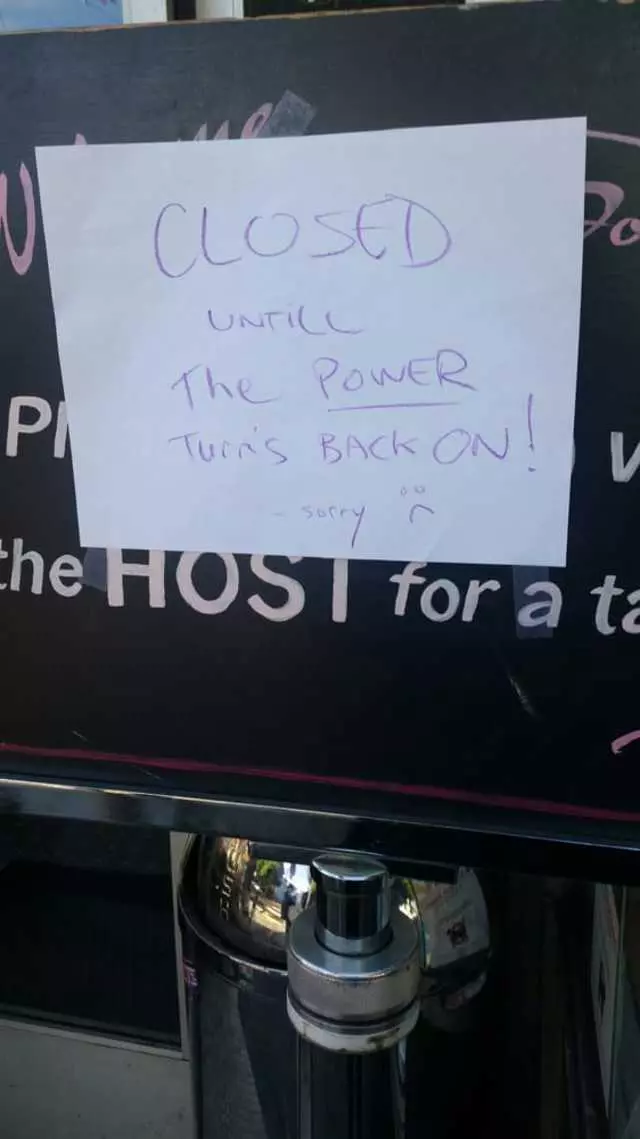 CLOSED
UNTILL
The POWER
Turn's BACK ON!
- sorry
the HOST for a